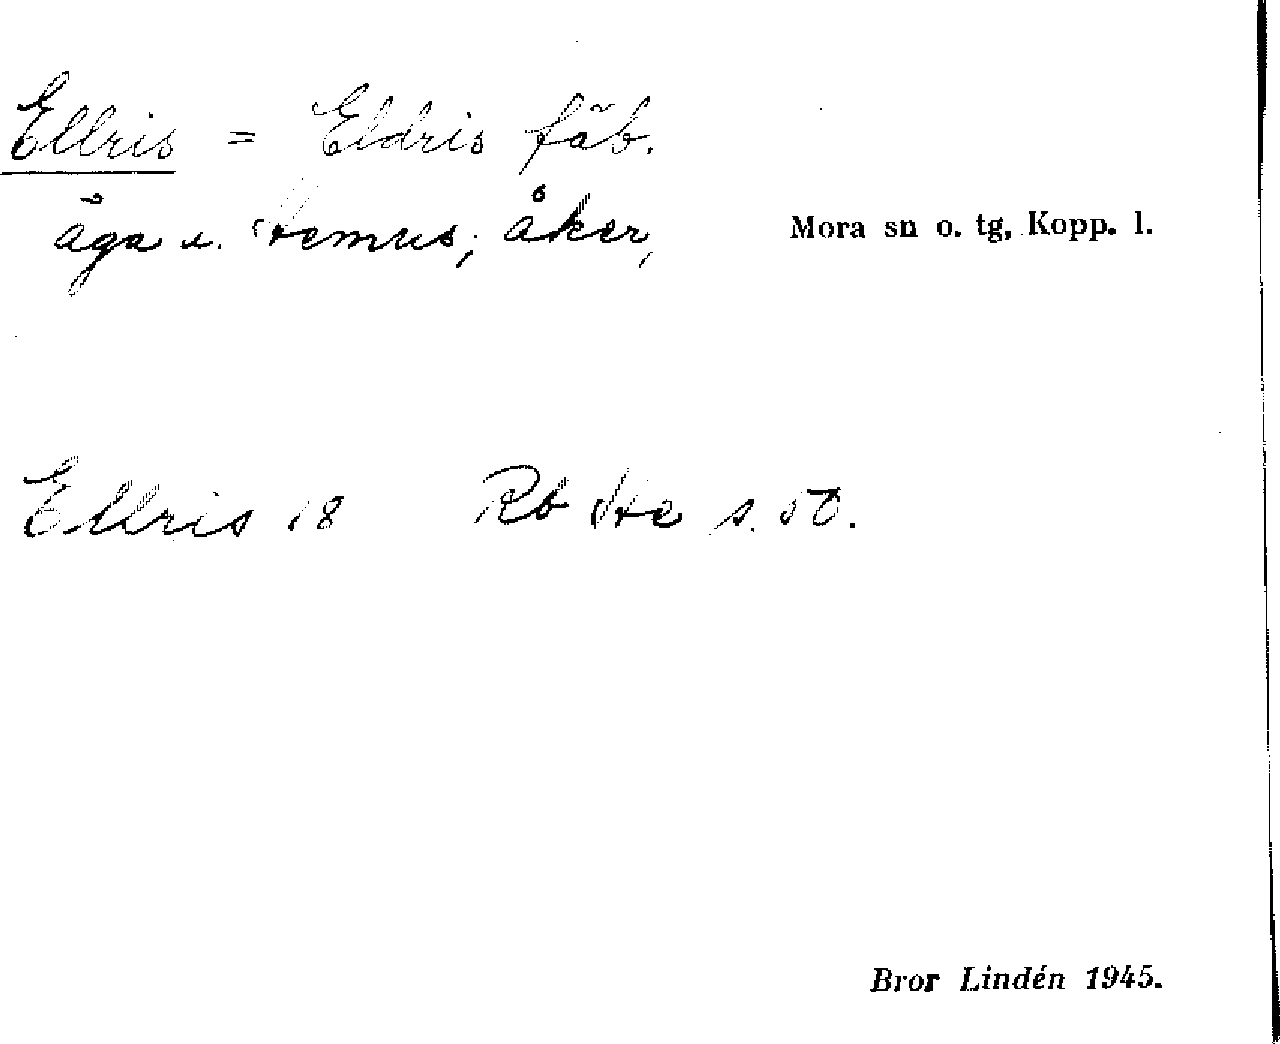 Ellris = Eldris fäb.
äga u. Hemus; åker,
Mora sn o. tg, Kopp. l.
Ellris 18 Rb He s. 50.
Bror Lindén 1945.